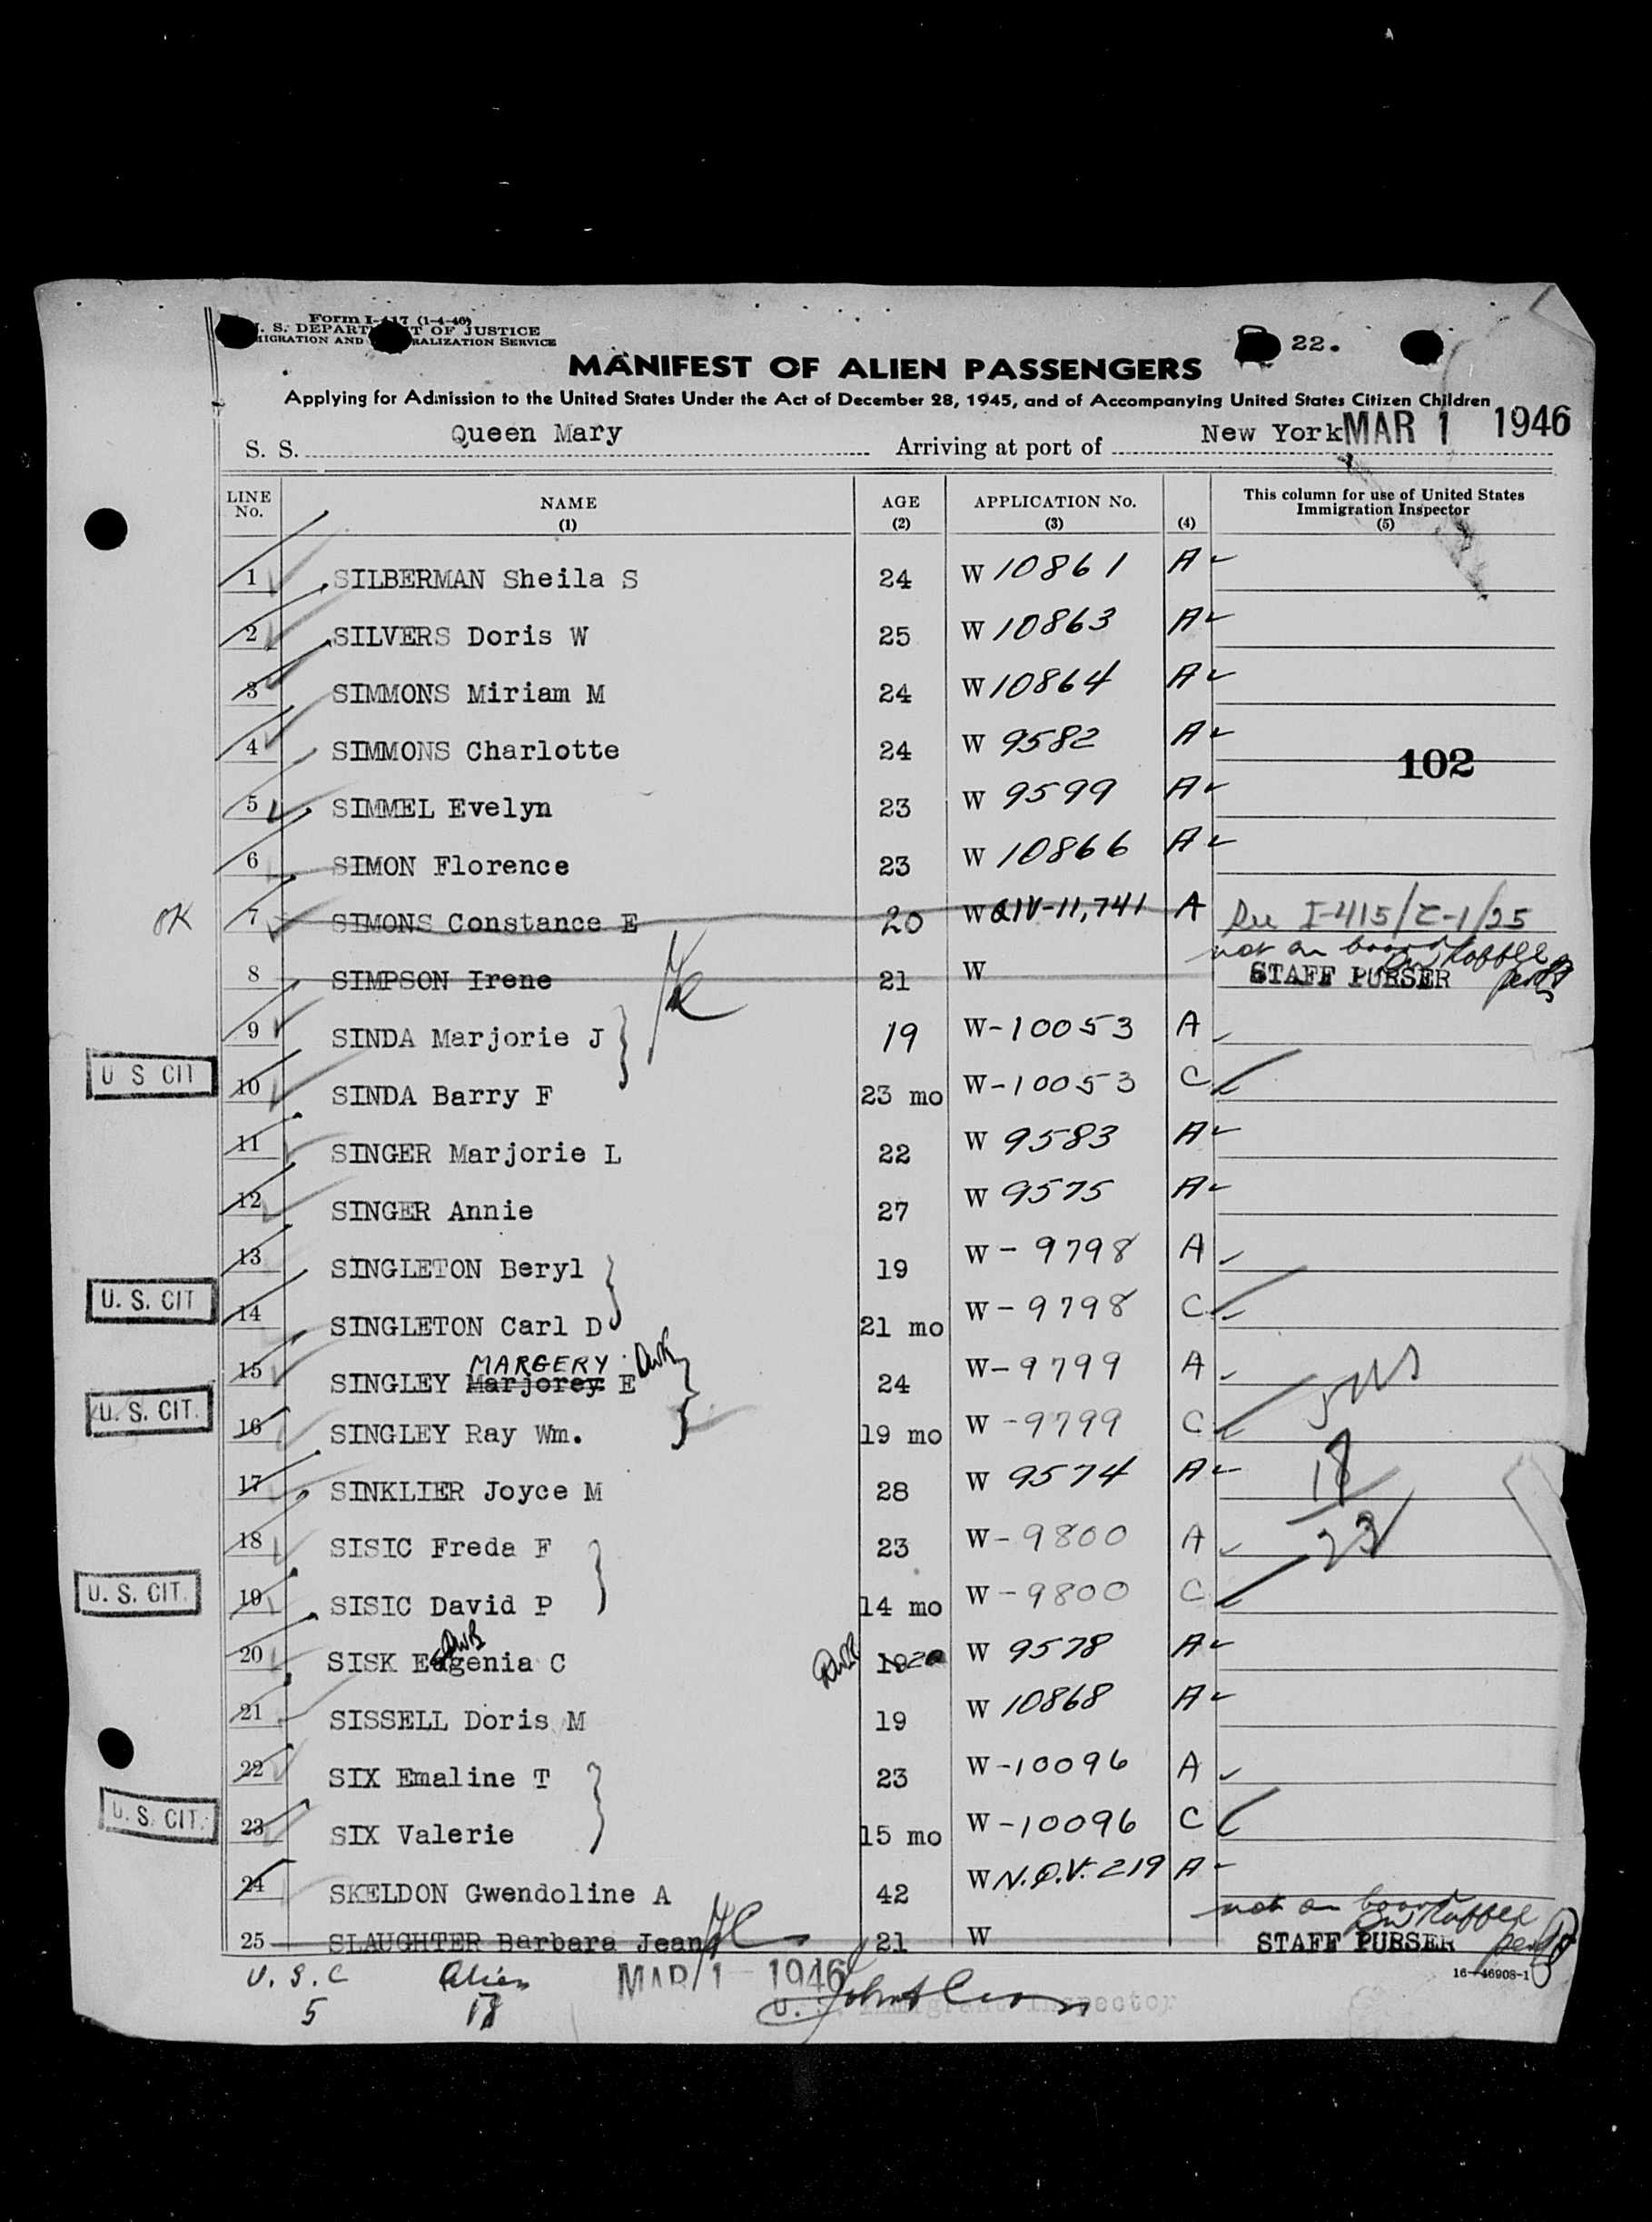 Form I-417 (1-4-46)
U. S. DEPARTMENT OF JUSTICE
IMMIGRATION AND NATURALIZATION SERVICE
22.
MANIFEST OF ALIEN PASSENGERS
Applying for Admission to the United States Under the Act of December 28, 1945, and of Accompanying United States Citizen Children
S. S. Queen Mary Arriving at port of New York MAR 1 1946
LINE No. NAME (1) AGE (2) APPLICATION No. (3) (4) This column for use of United States Immigration Inspector (5)
1 SILBERMAN Sheila S 24 W 10861 A
2 SILVERS Doris W 25 W 10863 A
3 SIMMONS Miriam M 24 W 10864 A
4 SIMMONS Charlotte 24 W 9582 A
102
5 SIMMEL Evelyn 23 W 9599 A
6 SIMON Florence 23 W 10866 A
OK 7 SIMONS Constance E 20 W QIV-11,741 A I-415/C-1/25
not on board
8 SIMPSON Irene 21 W STAFF PURSER
9 SINDA Marjorie J 19 W-10053 A
U S CIT 10 SINDA Barry F 23 mo W-10053 C
11 SINGER Marjorie L 22 W 9583 A
12 SINGER Annie 27 W 9575 A
13 SINGLETON Beryl 19 W-9798 A
U. S. CIT 14 SINGLETON Carl D 21 mo W-9798 C
15 SINGLEY Marjorey MARGERY E 24 W-9799 A
U. S. CIT. 16 SINGLEY Ray Wm. 19 mo W-9799 C
17 SINKLIER Joyce M 28 W 9574 A 18
18 SISIC Freda F 23 W-9800 A 23
U. S. CIT. 19 SISIC David P 14 mo W-9800 C
20 SISK Eugenia C 19 20 W 9578 A
21 SISSELL Doris M 19 W 10868 A
22 SIX Emaline T 23 W-10096 A
U. S. CIT. 23 SIX Valerie 15 mo W-10096 C
24 SKELDON Gwendoline A 42 W N.Q.V. 219 A
not on board
25 SLAUGHTER Barbara Jean 21 W STAFF PURSER
16-46908-1
U. S. C Alien MAR 1 - 1946
5 18 Immigrant Inspector